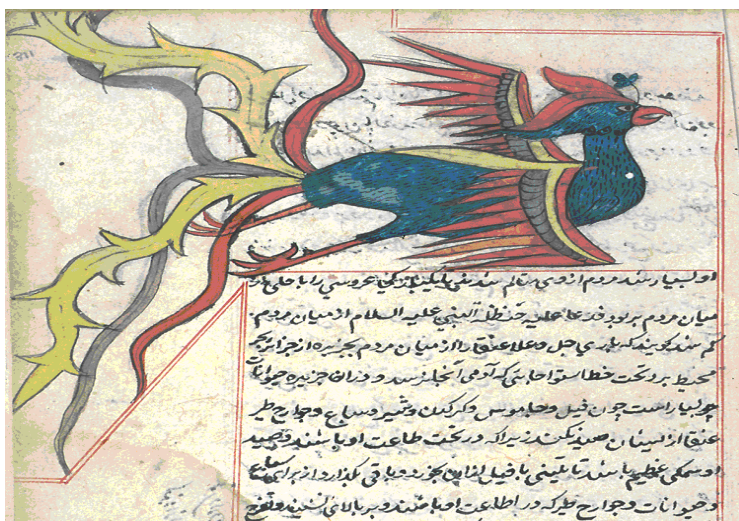 او بسیار شد مردم از وی متالم شدند تا یکبار عروسی را با حلی از
میان مردم بربود فدعا علیه حنظلة النبی علیه السلام از میان مردم
کم شد کویند که باری جل و علا عنقا را از میان مردم بجزیره از جزایر بحر
محیط برد تحت خط استوا جایی که آدمی آنجا نرسد و در آن جزیره حیوانات
بسیار است چون فیل و جاموس و کرکدن و شیر و سباع و جوارح طیر
عنقا از ایشان صید نکند زیرا که در تحت طاعت او باشند و صید
او سمکی عظیم باشد یا تنینی یا فیل از این بخورد و باقی بکذارد از برای سباع
و حیوانات و جوارح طیر که در اطاعت او باشند و بر بالای نشیند و تفرج